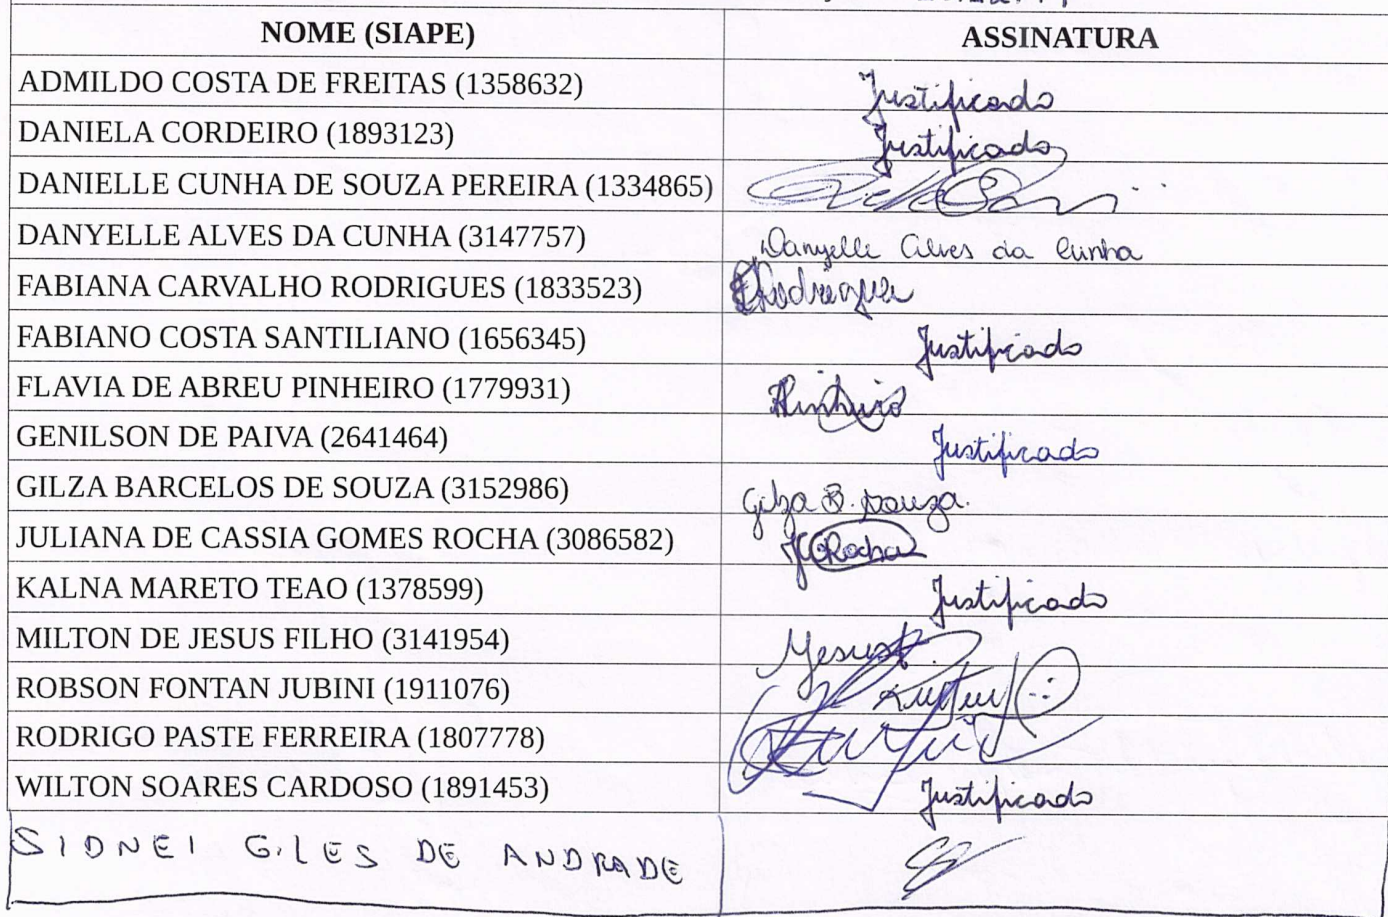 NOME (SIAPE) ASSINATURA
ADMILDO COSTA DE FREITAS (1358632) Justificado
DANIELA CORDEIRO (1893123) Justificado
DANIELLE CUNHA DE SOUZA PEREIRA (1334865)
DANYELLE ALVES DA CUNHA (3147757) Danyelle Alves da Cunha
FABIANA CARVALHO RODRIGUES (1833523) Rodrigues
FABIANO COSTA SANTILIANO (1656345) Justificado
FLAVIA DE ABREU PINHEIRO (1779931) Pinheiro
GENILSON DE PAIVA (2641464) Justificado
GILZA BARCELOS DE SOUZA (3152986) Gilza B. Souza.
JULIANA DE CASSIA GOMES ROCHA (3086582) JCGRocha
KALNA MARETO TEAO (1378599) Justificado
MILTON DE JESUS FILHO (3141954)
ROBSON FONTAN JUBINI (1911076)
RODRIGO PASTE FERREIRA (1807778)
WILTON SOARES CARDOSO (1891453) Justificado
SIDNEI GILES DE ANDRADE